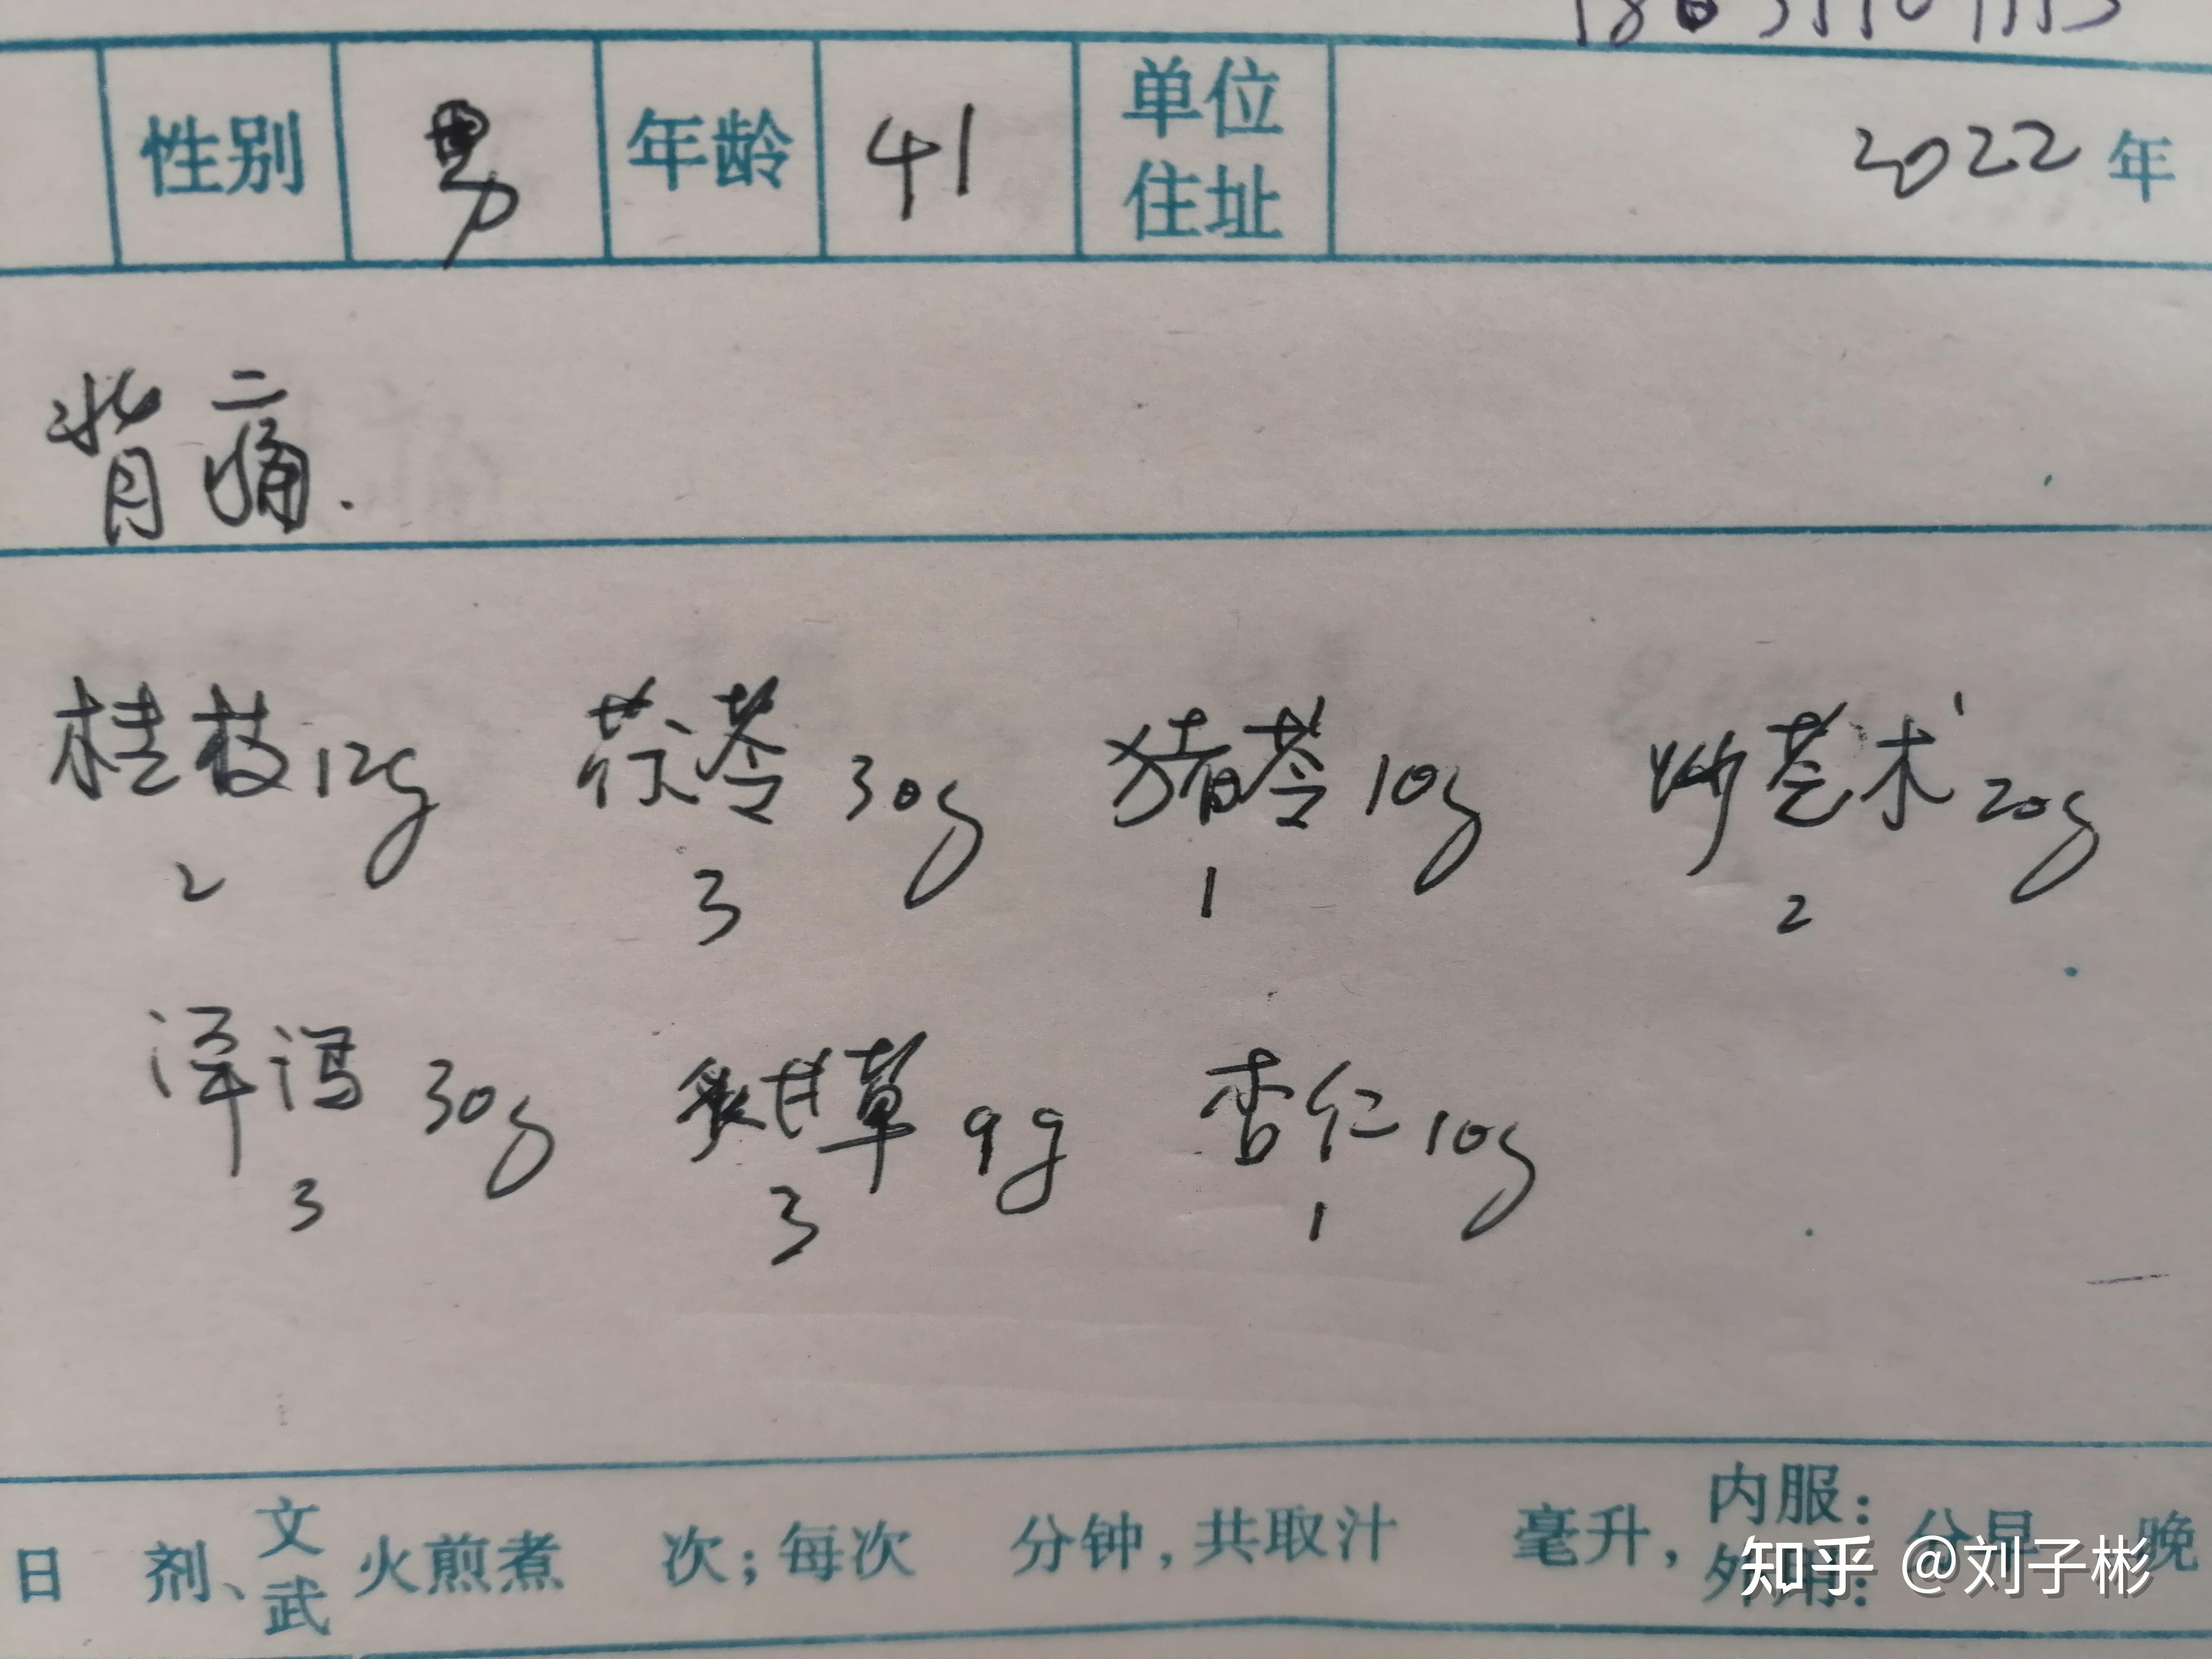 性别 男 年龄 41 单位住址 2022年
背痛.
桂枝12g 茯苓30g 猪苓10g 炒苍术20g
2 3 1 2
泽泻30g 炙甘草9g 杏仁10g
3 3 1
日 剂、文武火煎煮 次；每次 分钟，共取汁 毫升，内服：外用：分早 晚
知乎 @刘子彬